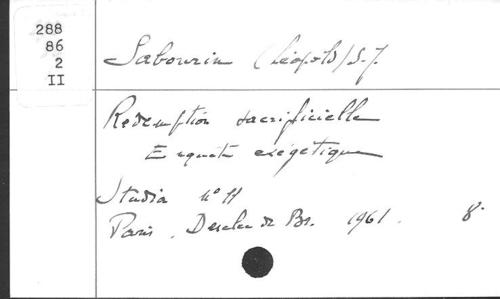 288
86
2
II
Sabourin (Léopold) S.J.
Rédemption sacrificielle
Enquête exégétique
Studia n° 11
Paris, Desclée de Br. 1961. 8°